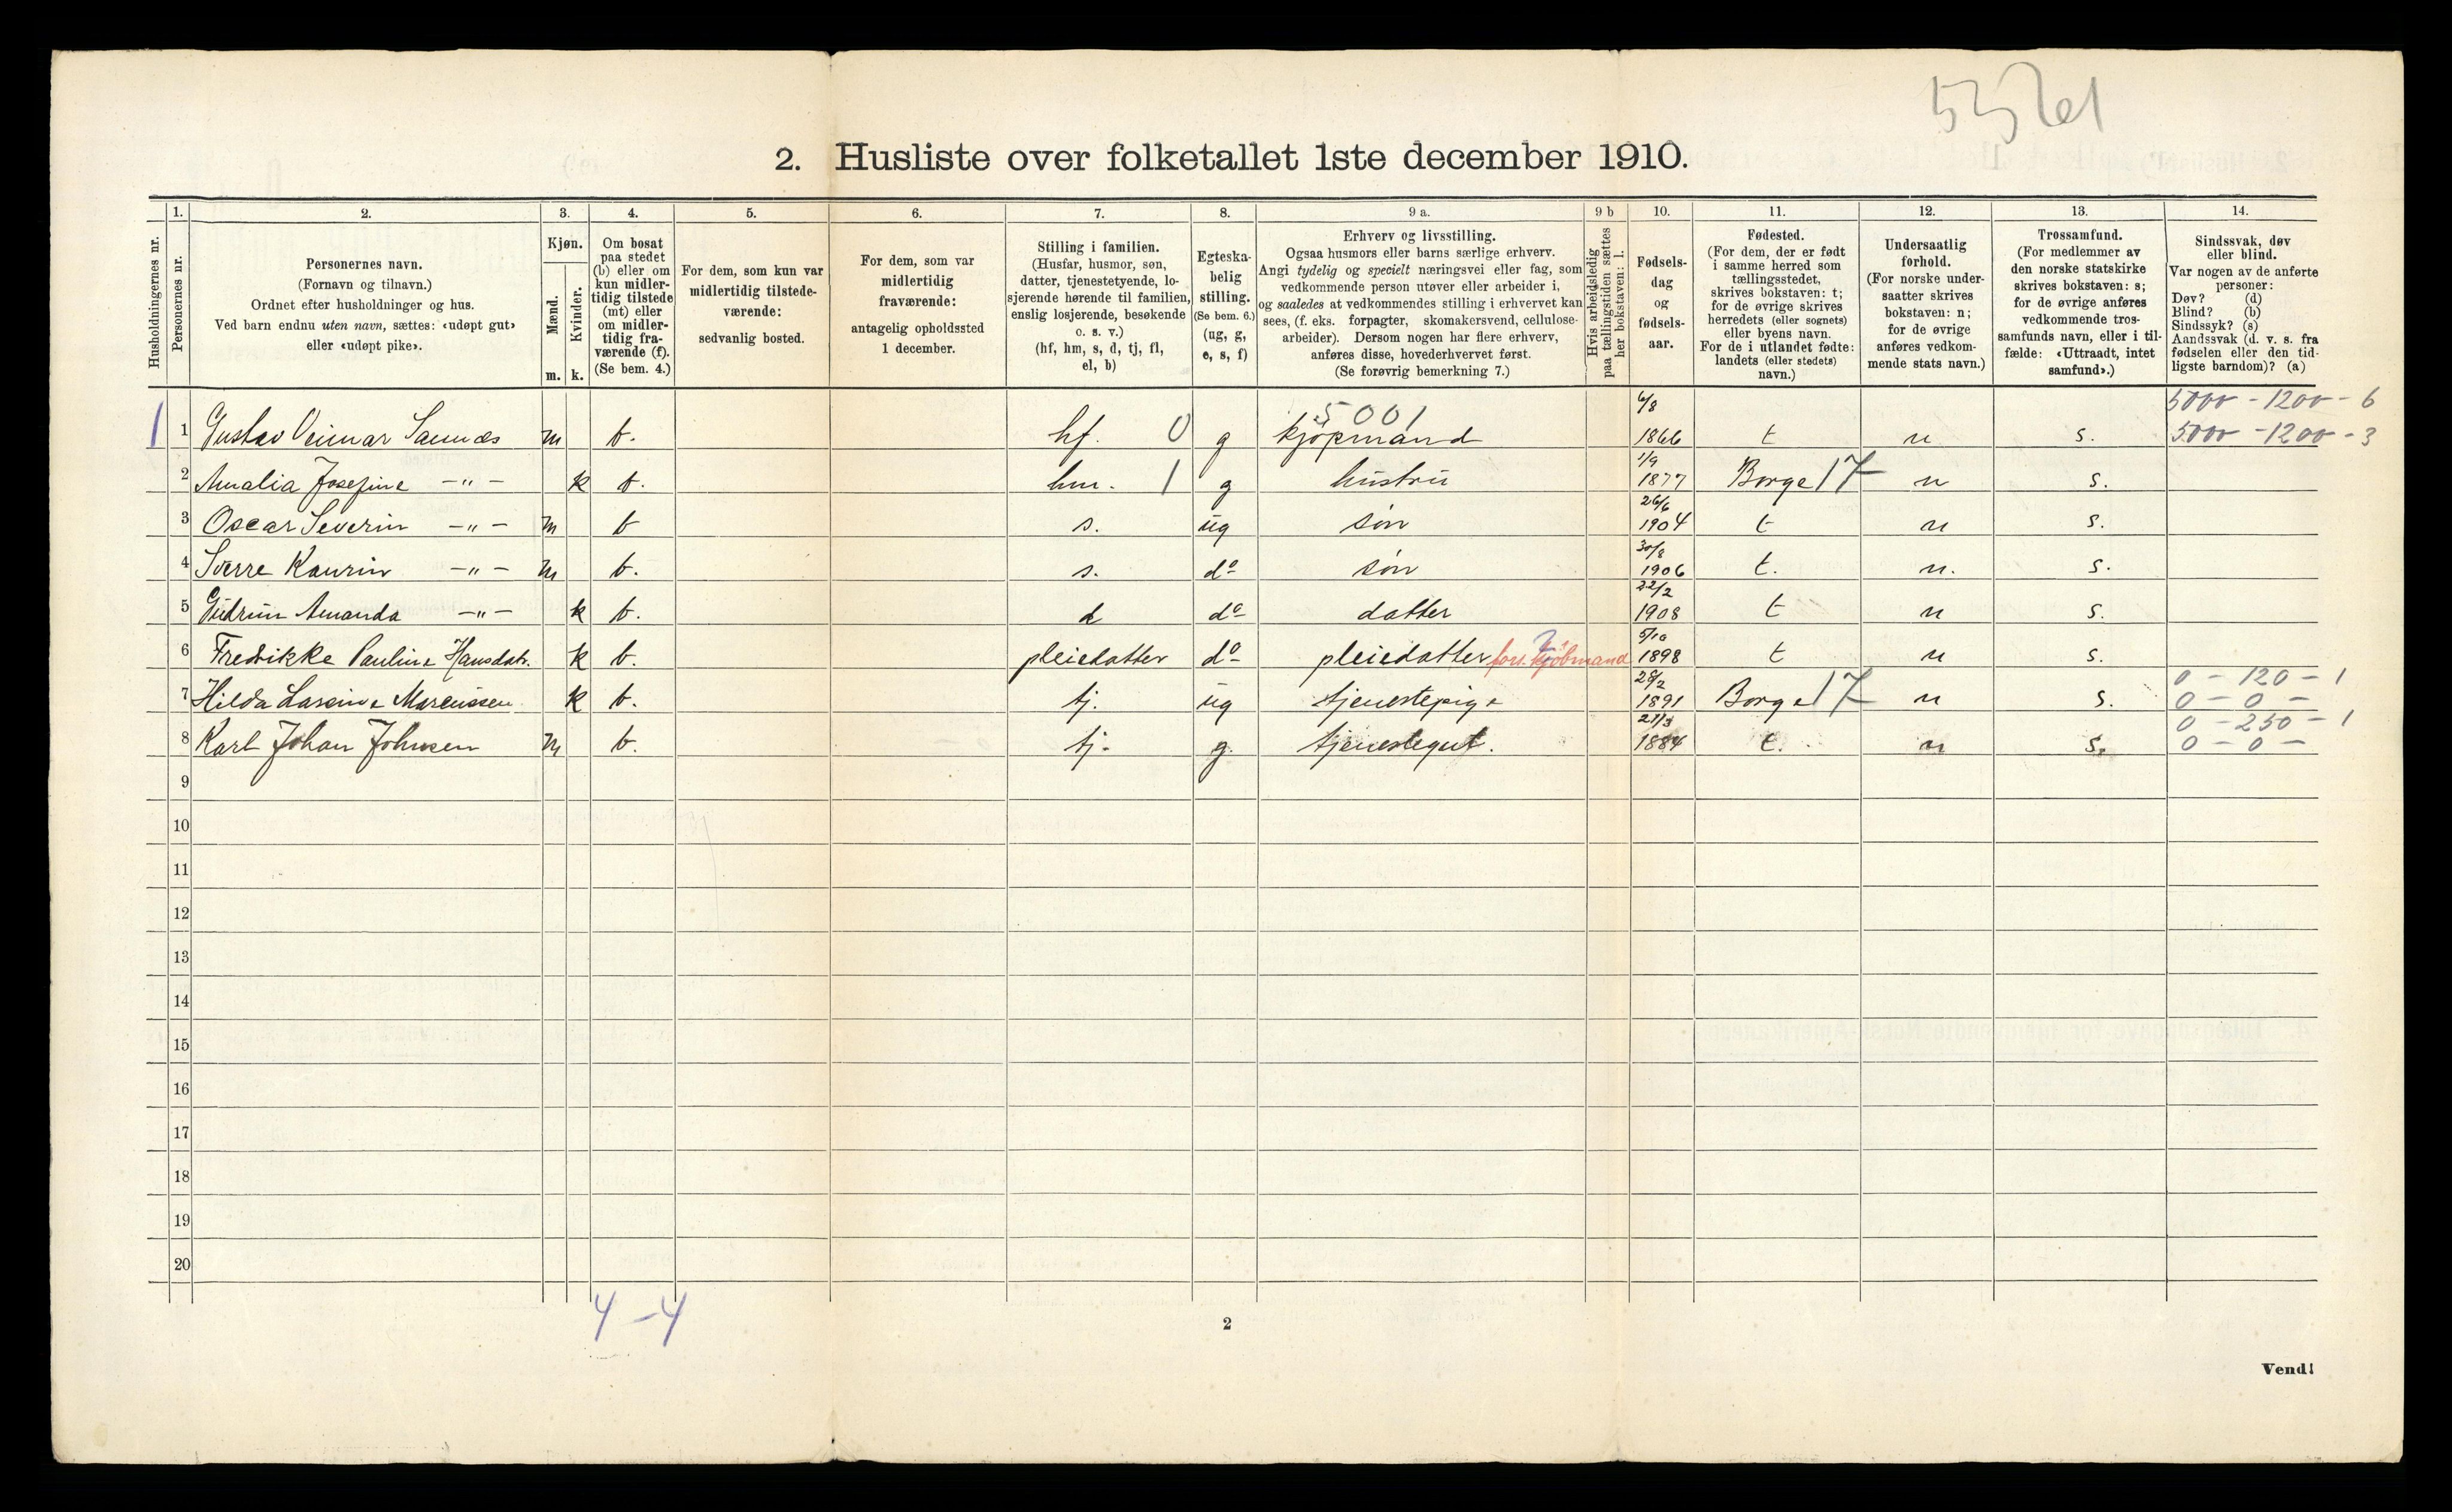 2. Husliste over folketallet 1ste december 1910.
Husholdningernes nr.
1.
Personernes nr.
2.
Personernes navn.
(Fornavn og tilnavn.)
Ordnet efter husholdninger og hus.
Ved barn endnu uten navn, sættes: «udøpt gut»
eller «udøpt pike».
3.
Kjøn.
Mænd.
Kvinder.
m. k.
4.
Om bosat
paa stedet
(b) eller om
kun midler-
tidig tilstede
(mt) eller
om midler-
tidig fra-
værende (f).
(Se bem. 4.)
5.
For dem, som kun var
midlertidig tilstede-
værende:
sedvanlig bosted.
6.
For dem, som var
midlertidig
fraværende:
antagelig opholdssted
1 december.
7.
Stilling i familien.
(Husfar, husmor, søn,
datter, tjenestetyende, lo-
sjerende hørende til familien,
enslig losjerende, besøkende
o. s. v.)
(hf, hm, s, d, tj, fl,
el, b)
8.
Egteska-
belig
stilling.
(Se bem. 6.)
(ug, g,
e, s, f)
9 a.
Erhverv og livsstilling.
Ogsaa husmors eller barns særlige erhverv.
Angi tydelig og specielt næringsvei eller fag, som
vedkommende person utøver eller arbeider i,
og saaledes at vedkommendes stilling i erhvervet kan
sees, (f. eks. forpagter, skomakersvend, cellulose-
arbeider). Dersom nogen har flere erhverv,
anføres disse, hovederhvervet først.
(Se forøvrig bemerkning 7.)
9 b
Hvis arbeidsledig
paa tællingstiden sættes
her bokstaven: l.
10.
Fødsels-
dag
og
fødsels-
aar.
11.
Fødested.
(For dem, der er født
i samme herred som
tællingsstedet,
skrives bokstaven: t;
for de øvrige skrives
herredets (eller sognets)
eller byens navn.
For de i utlandet fødte:
landets (eller stedets)
navn.)
12.
Undersaatlig
forhold.
(For norske under-
saatter skrives
bokstaven: n;
for de øvrige
anføres vedkom-
mende stats navn.)
13.
Trossamfund.
(For medlemmer av
den norske statskirke
skrives bokstaven: s;
for de øvrige anføres
vedkommende tros-
samfunds navn, eller i til-
fælde: «Uttraadt, intet
samfund».)
14.
Sindssvak, døv
eller blind.
Var nogen av de anførte
personer:
Døv? (d)
Blind? (b)
Sindssyk? (s)
Aandssvak (d. v. s. fra
fødselen eller den tid-
ligste barndom)? (a)
5001 6/8 5000 - 1200 - 6
1 1 Gustav Veimar m b. hf. 0 g kjøpmand 1866 t n s. 5000 - 1200 - 3
2 Amalia Josefine -"- k b. hm. 1 g hustru 1/9 1877 Borge 17 n s.
3 Oscar Severin -"- m b s. ug søn 26/6 1904 t n s.
4 Sverre Kaurin -"- m b. s. do søn 30/8 1906 t. n. s.
5 Gudrun Amanda -"- k b. d do datter 22/2 1908 t n s.
6 Fredrikke Pauline Hansdatr. k b. pleiedatter do pleiedatter fors. kjøbmand 5/10 1898 t n s.
0 - 120 - 1
7 Hilda Larsine Marcussen k b. tj. ug tjenestepige 28/2 1891 Borge 17 n s. 0 - 0 -
0 - 250 - 1
8 Karl Johan Johnsen m b. tj. g. tjenestegut. 21/3 1884 t. n s. 0 - 0 -
9
10
11
12
13
14
15
16
17
18
19
20
4 - 4
2
Vend!